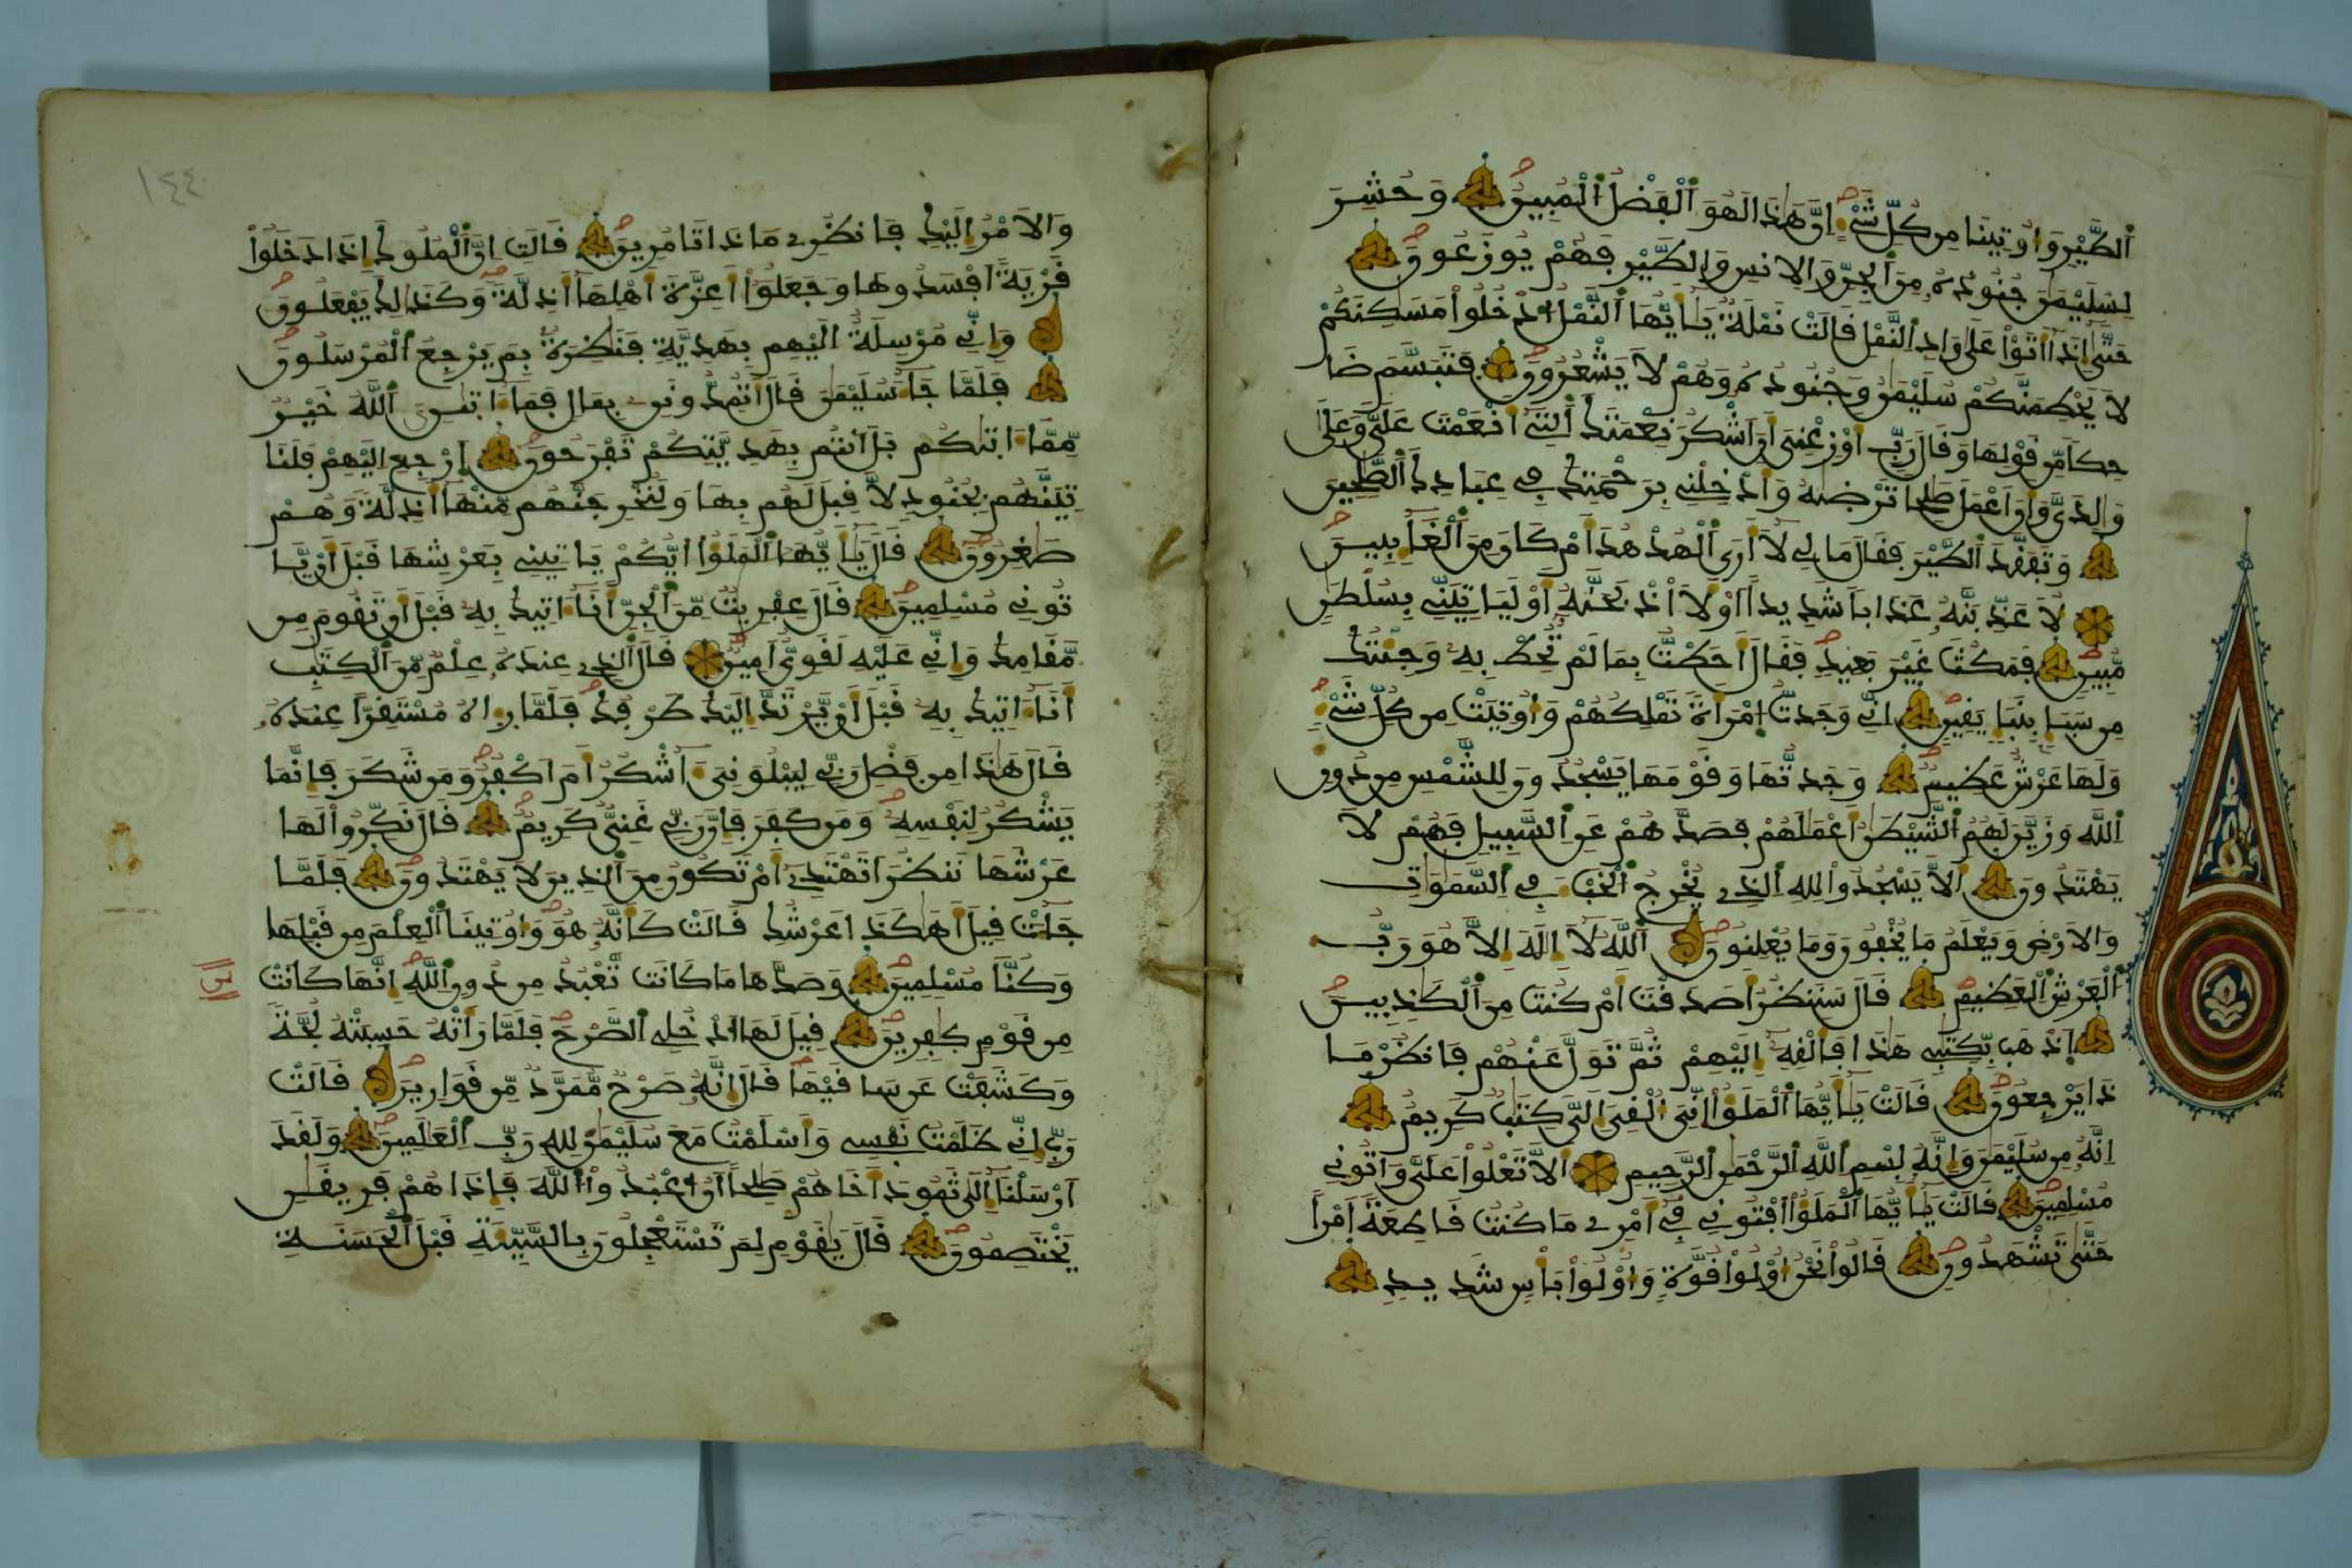 ٱلطَّيْرِ وَأُوتِينَا مِن كُلِّ شَيْءٍ إِنَّ هَٰذَا لَهُوَ ٱلْفَضْلُ ٱلْمُبِينُ وَحُشِرَ
لِسُلَيْمَٰنَ جُنُودُهُۥ مِنَ ٱلْجِنِّ وَٱلْإِنسِ وَٱلطَّيْرِ فَهُمْ يُوزَعُونَ
حَتَّىٰ إِذَا أَتَوْا۟ عَلَىٰ وَادِ ٱلنَّمْلِ قَالَتْ نَمْلَةٌ يَٰأَيُّهَا ٱلنَّمْلُ ٱدْخُلُوا۟ مَسَٰكِنَكُمْ
لَا يَحْطِمَنَّكُمْ سُلَيْمَٰنُ وَجُنُودُهُۥ وَهُمْ لَا يَشْعُرُونَ فَتَبَسَّمَ ضَا
حِكًا مِّن قَوْلِهَا وَقَالَ رَبِّ أَوْزِعْنِي أَنْ أَشْكُرَ نِعْمَتَكَ ٱلَّتِي أَنْعَمْتَ عَلَيَّ وَعَلَىٰ
وَٰلِدَيَّ وَأَنْ أَعْمَلَ صَٰلِحًا تَرْضَىٰهُ وَأَدْخِلْنِي بِرَحْمَتِكَ فِي عِبَادِكَ ٱلصَّٰلِحِينَ
وَتَفَقَّدَ ٱلطَّيْرَ فَقَالَ مَا لِي لَا أَرَى ٱلْهُدْهُدَ أَمْ كَانَ مِنَ ٱلْغَآئِبِينَ
لَأُعَذِّبَنَّهُۥ عَذَابًا شَدِيدًا أَوْ لَأَا۟ذْبَحَنَّهُۥ أَوْ لَيَأْتِيَنِّي بِسُلْطَٰنٍ
مُّبِينٍ فَمَكُثَ غَيْرَ بَعِيدٍ فَقَالَ أَحَطتُ بِمَا لَمْ تُحِطْ بِهِۦ وَجِئْتُكَ
مِن سَبَإٍ بِنَبَإٍ يَقِينٍ إِنِّي وَجَدتُّ ٱمْرَأَةً تَمْلِكُهُمْ وَأُوتِيَتْ مِن كُلِّ شَيْءٍ
وَلَهَا عَرْشٌ عَظِيمٌ وَجَدتُّهَا وَقَوْمَهَا يَسْجُدُونَ لِلشَّمْسِ مِن دُونِ
ٱللَّهِ وَزَيَّنَ لَهُمُ ٱلشَّيْطَٰنُ أَعْمَٰلَهُمْ فَصَدَّهُمْ عَنِ ٱلسَّبِيلِ فَهُمْ لَا
يَهْتَدُونَ أَلَّا يَسْجُدُوا۟ لِلَّهِ ٱلَّذِي يُخْرِجُ ٱلْخَبْءَ فِي ٱلسَّمَٰوَٰتِ
وَٱلْأَرْضِ وَيَعْلَمُ مَا يُخْفُونَ وَمَا يُعْلِنُونَ ٱللَّهُ لَا إِلَٰهَ إِلَّا هُوَ رَبُّ
ٱلْعَرْشِ ٱلْعَظِيمِ قَالَ سَنَنظُرُ أَصَدَقْتَ أَمْ كُنتَ مِنَ ٱلْكَٰذِبِينَ
ٱذْهَب بِّكِتَٰبِي هَٰذَا فَأَلْقِهِ إِلَيْهِمْ ثُمَّ تَوَلَّ عَنْهُمْ فَٱنظُرْ مَا
ذَا يَرْجِعُونَ قَالَتْ يَٰأَيُّهَا ٱلْمَلَؤُا۟ إِنِّي أُلْقِيَ إِلَيَّ كِتَٰبٌ كَرِيمٌ
إِنَّهُۥ مِن سُلَيْمَٰنَ وَإِنَّهُۥ بِسْمِ ٱللَّهِ ٱلرَّحْمَٰنِ ٱلرَّحِيمِ أَلَّا تَعْلُوا۟ عَلَيَّ وَأْتُونِي
مُسْلِمِينَ قَالَتْ يَٰأَيُّهَا ٱلْمَلَؤُا۟ أَفْتُونِي فِي أَمْرِي مَا كُنتُ قَاطِعَةً أَمْرًا
حَتَّىٰ تَشْهَدُونِ قَالُوا۟ نَحْنُ أُو۟لُوا۟ قُوَّةٍ وَأُو۟لُوا۟ بَأْسٍ شَدِيدٍ
١٤٤
وَٱلْأَمْرُ إِلَيْكِ فَٱنظُرِي مَاذَا تَأْمُرِينَ قَالَتْ إِنَّ ٱلْمُلُوكَ إِذَا دَخَلُوا۟
قَرْيَةً أَفْسَدُوهَا وَجَعَلُوا۟ أَعِزَّةَ أَهْلِهَا أَذِلَّةً وَكَذَٰلِكَ يَفْعَلُونَ
وَإِنِّي مُرْسِلَةٌ إِلَيْهِم بِهَدِيَّةٍ فَنَاظِرَةٌ بِمَ يَرْجِعُ ٱلْمُرْسَلُونَ
فَلَمَّا جَآءَ سُلَيْمَٰنَ قَالَ أَتُمِدُّونَنِ بِمَالٍ فَمَا ءَاتَىٰنِ ٱللَّهُ خَيْرٌ
مِّمَّا ءَاتَىٰكُم بَلْ أَنتُم بِهَدِيَّتِكُمْ تَفْرَحُونَ ٱرْجِعْ إِلَيْهِمْ فَلَنَأْ
تِيَنَّهُم بِجُنُودٍ لَّا قِبَلَ لَهُم بِهَا وَلَنُخْرِجَنَّهُم مِّنْهَا أَذِلَّةً وَهُمْ
صَٰغِرُونَ قَالَ يَٰأَيُّهَا ٱلْمَلَؤُا۟ أَيُّكُمْ يَأْتِينِي بِعَرْشِهَا قَبْلَ أَن يَّأْ
تُونِي مُسْلِمِينَ قَالَ عِفْرِيتٌ مِّنَ ٱلْجِنِّ أَنَا ءَاتِيكَ بِهِۦ قَبْلَ أَن تَقُومَ مِن
مَّقَامِكَ وَإِنِّي عَلَيْهِ لَقَوِيٌّ أَمِينٌ قَالَ ٱلَّذِي عِندَهُۥ عِلْمٌ مِّنَ ٱلْكِتَٰبِ
أَنَا ءَاتِيكَ بِهِۦ قَبْلَ أَن يَّرْتَدَّ إِلَيْكَ طَرْفُكَ فَلَمَّا رَءَاهُ مُسْتَقِرًّا عِندَهُۥ
قَالَ هَٰذَا مِن فَضْلِ رَبِّي لِيَبْلُوَنِي ءَأَشْكُرُ أَمْ أَكْفُرُ وَمَن شَكَرَ فَإِنَّمَا
يَشْكُرُ لِنَفْسِهِۦ وَمَن كَفَرَ فَإِنَّ رَبِّي غَنِيٌّ كَرِيمٌ قَالَ نَكِّرُوا۟ لَهَا
عَرْشَهَا نَنظُرْ أَتَهْتَدِي أَمْ تَكُونُ مِنَ ٱلَّذِينَ لَا يَهْتَدُونَ فَلَمَّا
جَآءَتْ قِيلَ أَهَٰكَذَا عَرْشُكِ قَالَتْ كَأَنَّهُۥ هُوَ وَأُوتِينَا ٱلْعِلْمَ مِن قَبْلِهَا
وَكُنَّا مُسْلِمِينَ وَصَدَّهَا مَا كَانَت تَّعْبُدُ مِن دُونِ ٱللَّهِ إِنَّهَا كَانَتْ
مِن قَوْمٍ كَٰفِرِينَ قِيلَ لَهَا ٱدْخُلِي ٱلصَّرْحَ فَلَمَّا رَأَتْهُ حَسِبَتْهُ لُجَّةً
وَكَشَفَتْ عَن سَاقَيْهَا قَالَ إِنَّهُۥ صَرْحٌ مُّمَرَّدٌ مِّن قَوَارِيرَ قَالَتْ
رَبِّ إِنِّي ظَلَمْتُ نَفْسِي وَأَسْلَمْتُ مَعَ سُلَيْمَٰنَ لِلَّهِ رَبِّ ٱلْعَٰلَمِينَ وَلَقَدْ
أَرْسَلْنَا إِلَىٰ ثَمُودَ أَخَاهُمْ صَٰلِحًا أَنُ ٱعْبُدُوا۟ ٱللَّهَ فَإِذَا هُمْ فَرِيقَٰنِ
يَخْتَصِمُونَ قَالَ يَٰقَوْمِ لِمَ تَسْتَعْجِلُونَ بِٱلسَّيِّئَةِ قَبْلَ ٱلْحَسَنَةِ